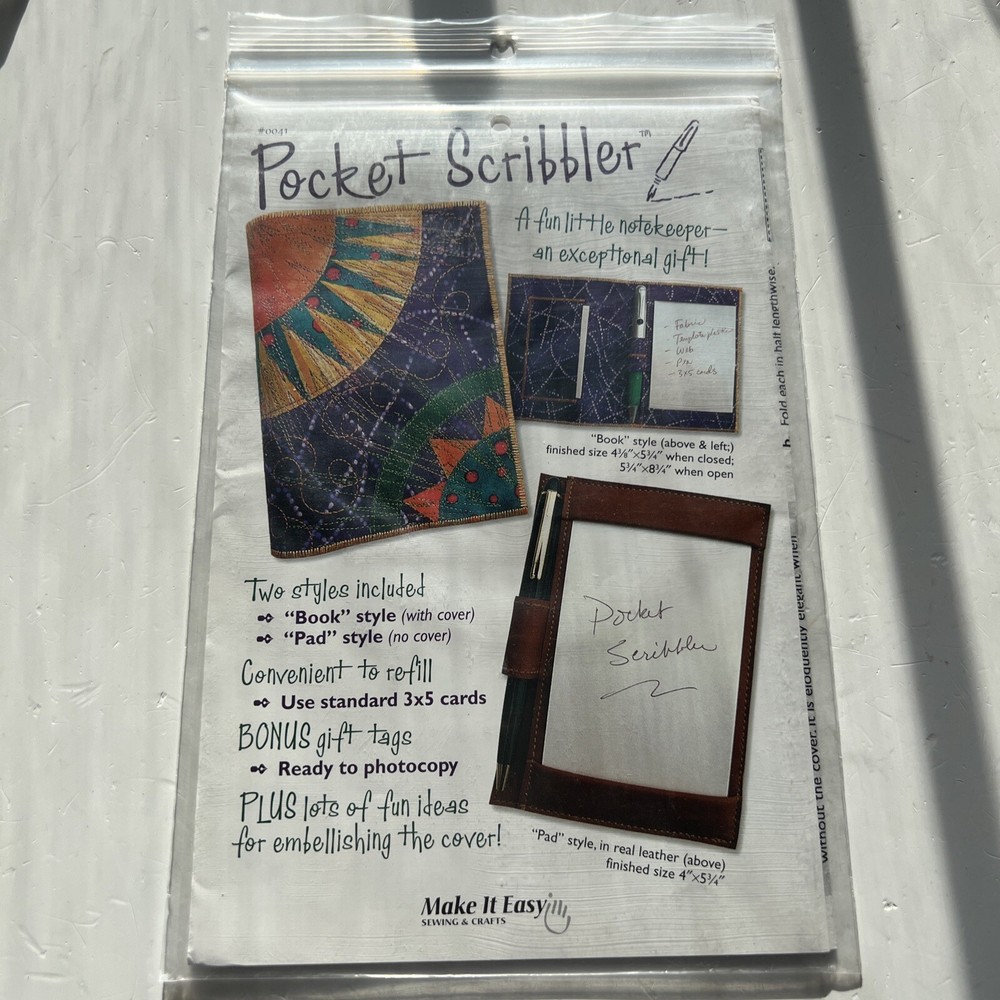 #0041
Pocket Scribbler™
A fun little notekeeper—
an exceptional gift!
- Fabric
- Web
- Pen
- 3x5 cards
"Book" style (above & left;)
finished size 4⅜"×5¾" when closed;
5¾"×8¾" when open
Two styles included
"Book" style (with cover)
"Pad" style (no cover)
Convenient to refill
Use standard 3x5 cards
BONUS gift tags
Ready to photocopy
PLUS lots of fun ideas
for embellishing the cover!
Pocket
Scribbler
"Pad" style, in real leather (above)
finished size 4"×5¾"
Make It Easy
SEWING & CRAFTS
b. Fold each in half lengthwise.
without the cover. It is eloquently elegant when